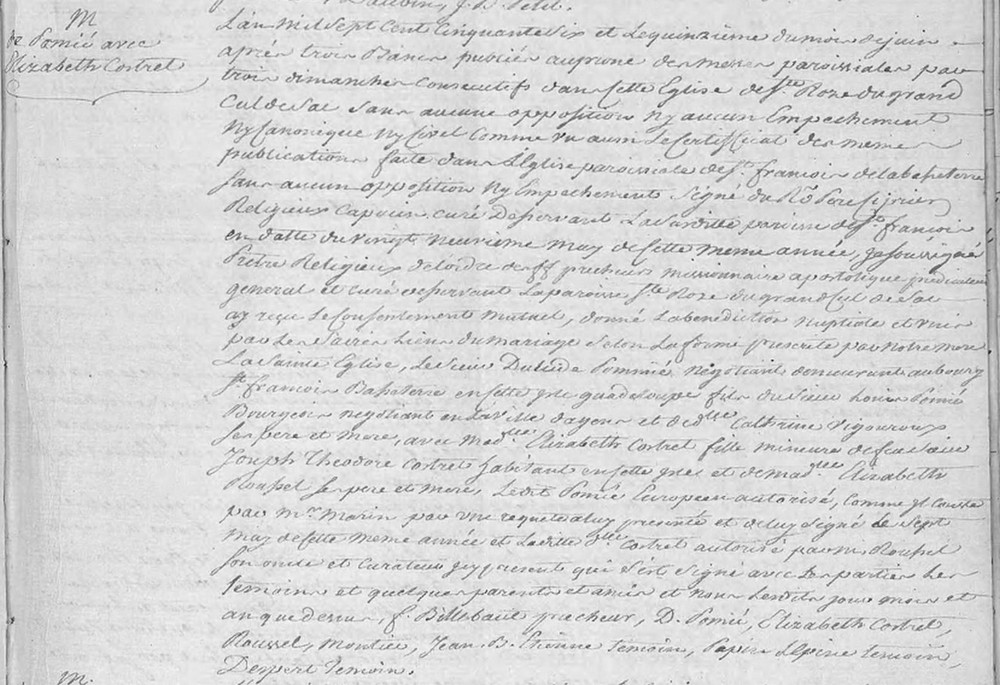 M
de Pomié avec
Elizabeth Cortret
L'an mil sept cent cinquante six et le quinzième du mois de juin
après trois Bans publiés au prone des messes paroissiales par
trois dimanches consecutifs dans cette Eglise de Ste Roze du grand
Cul de Sac sans aucune opposition ny aucun Empechement
ny canonique ny sivel comme vu aussi le certifficat des memes
publications faite dans l'Eglise paroissiale de St francois de la basseterre
sans aucun opposition ny Empechement signé du Rd Pere
Religieux Capucin curé desservant la susditte paroisse de St francois
en datte du vingt neuvieme may de cette meme année, je soussigné
Pretre Religieux de l'ordre des ff precheurs missionnaire apostolique predicateur
general et curé desservant la paroisse Ste Roze du grand Cul de Sac
ay reçu le consentement mutuel, donné la benediction nuptiale et unis
par les sacrés liens du mariage selon la forme prescrite par notre mere
La Sainte Eglise, le sieur Pommié negotiant demeurant au bourg
St francois Basseterre en cette isle guadeloupe fils du sieur Louis Pomié
Bourgeois negotiant en la ville et de dlle Catherine Vigouroux
ses pere et mere, avec madlle Elizabeth Cortret fille mineure de feu sieur
Joseph Theodore Cortret habitant en cette isle et de madlle Elizabeth
Roussel ses pere et mere, ledit Pomié Europeen autorisé, comme il conste
par mr Marin par une requete a luy presenté et de luy signé le sept
may de cette meme année et laditte dlle Cortret autorisé par m. Roussel
son oncle et curateur icy present qui s'est signé avec les parties les
temoins et quelques parents et amis et nous lesdits jour mois et
an que dessus, f. Billebaut precheur, D. Pomié, Elizabeth Cortret,
Roussel, Jean B. Etienne temoin, Papin Lepine temoin,
Despert temoin.
M.